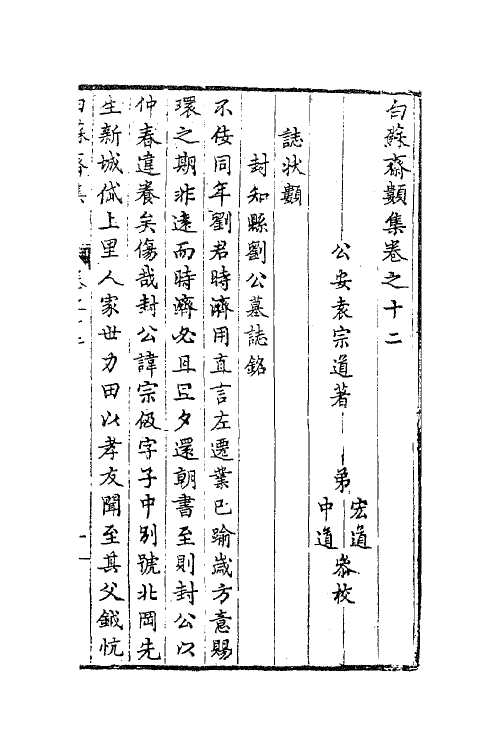 白蘇齋類集卷之十二
公安袁宗道著 弟 宏道 中道 叅校
誌状類
封知縣劉公墓誌銘
不佞同年劉君時濟用直言左遷業已踰歲方意賜
環之期非遠而時濟必且旦夕還朝書至則封公以
仲春違養矣傷哉封公諱宗伋字子中别號北岡先
生新城伭上里人家世力田以孝友聞至其父鉞忼
白蘇齋集 卷之十二 一